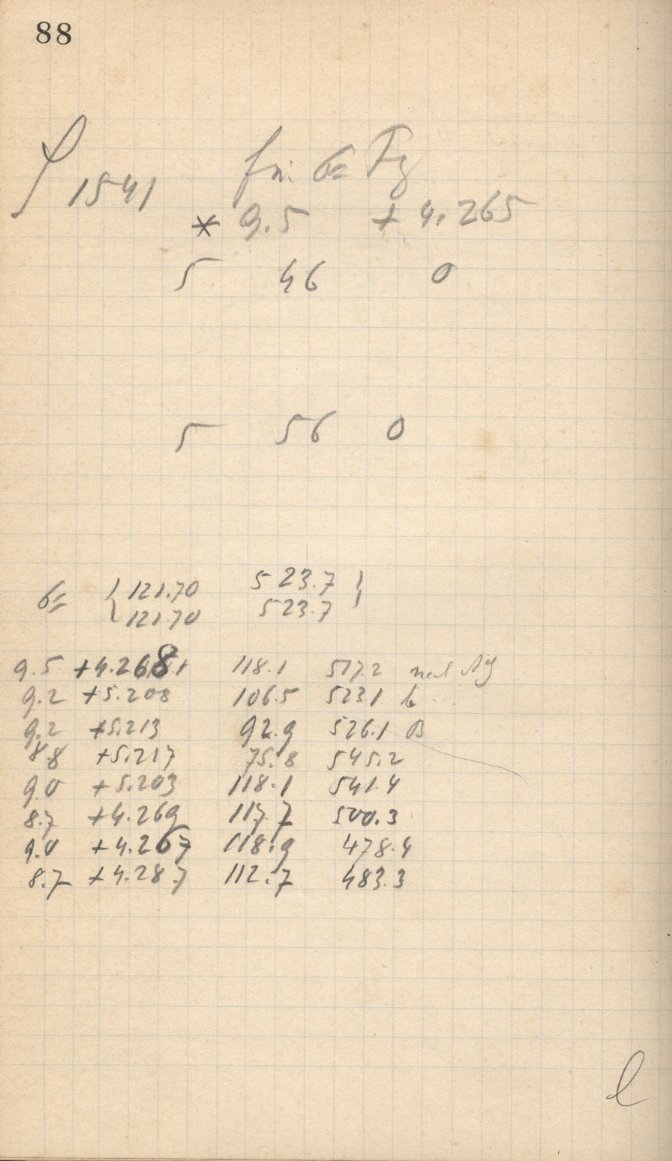 88
1541
* 9.5 +4.265
5 46 0
5 56 0
121.70 523.7
121.70 523.7
9.5 +4.268 118.1 517.2
9.2 +5.208 106.5 523.1 b
9.2 +5.213 92.9 526.1 B
8.8 +5.217 75.8 545.2
9.0 +5.203 118.1 541.4
8.7 +4.269 117.7 500.3
9.0 +4.267 118.9 478.4
8.7 +4.287 112.7 483.3
l